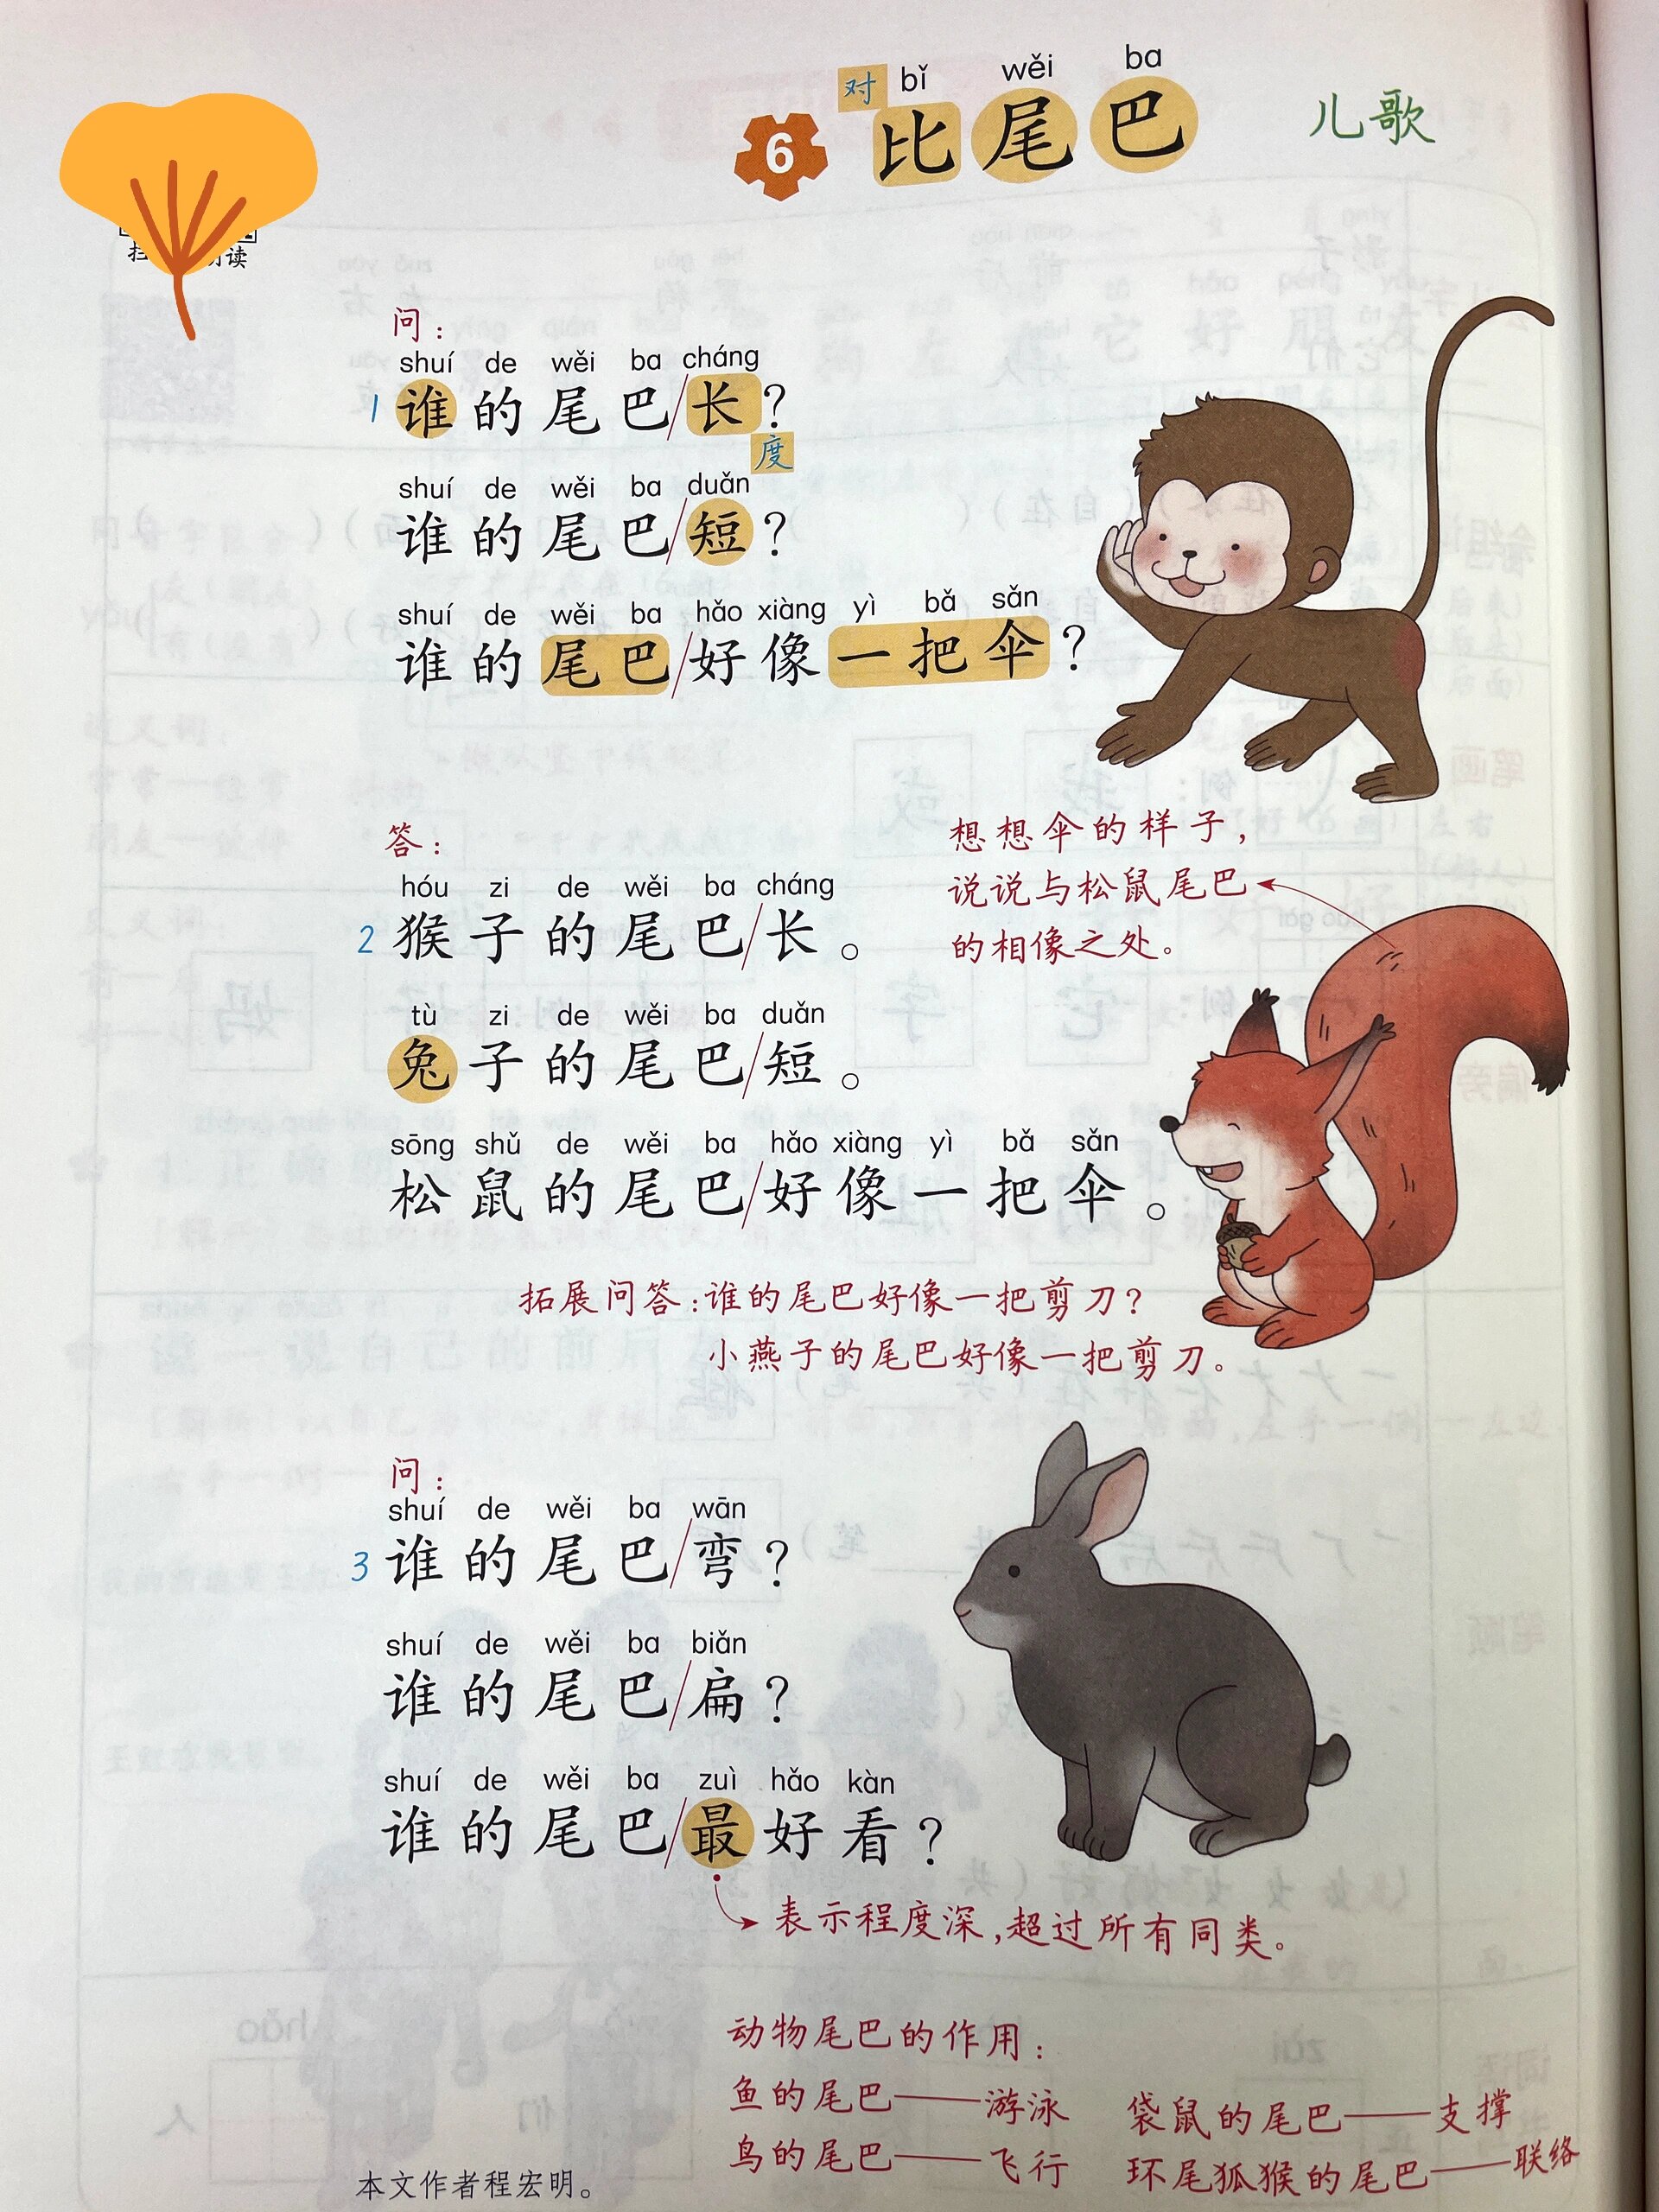 对
bǐ wěi ba
6 比尾巴 儿歌
扫 读
问：
shuí de wěi ba cháng
1 谁的尾巴/长？
度
shuí de wěi ba duǎn
谁的尾巴/短？
shuí de wěi ba hǎo xiàng yì bǎ sǎn
谁的尾巴/好像一把伞？
答：
hóu zi de wěi ba cháng
2 猴子的尾巴/长。
tù zi de wěi ba duǎn
兔子的尾巴/短。
sōng shǔ de wěi ba hǎo xiàng yì bǎ sǎn
松鼠的尾巴/好像一把伞。
想想伞的样子，
说说与松鼠尾巴
的相像之处。
拓展问答：谁的尾巴好像一把剪刀？
小燕子的尾巴好像一把剪刀。
问：
shuí de wěi ba wān
3 谁的尾巴/弯？
shuí de wěi ba biǎn
谁的尾巴/扁？
shuí de wěi ba zuì hǎo kàn
谁的尾巴/最好看？
表示程度深，超过所有同类。
动物尾巴的作用：
鱼的尾巴——游泳 袋鼠的尾巴——支撑
鸟的尾巴——飞行 环尾狐猴的尾巴——联络
本文作者程宏明。